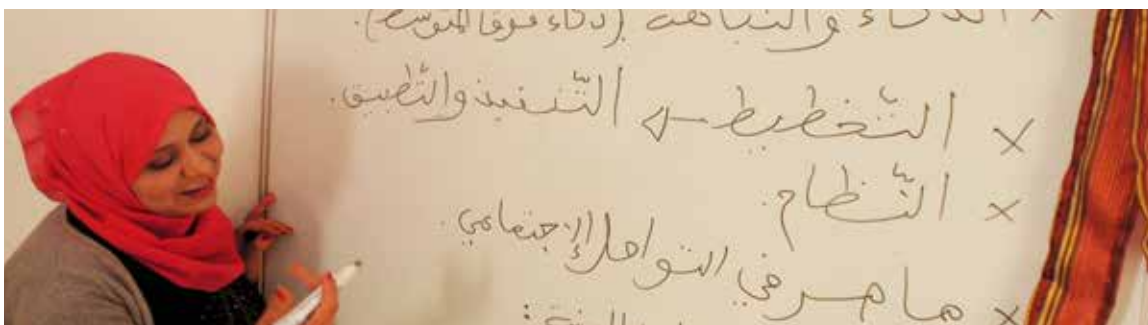 × الذكاء والنباهة (ذكاء فوق المتوسط).
× التّخطيط ← التّنفيذ والتّطبيق.
× النّظام.
× ماهر في التواصل الإجتماعي.